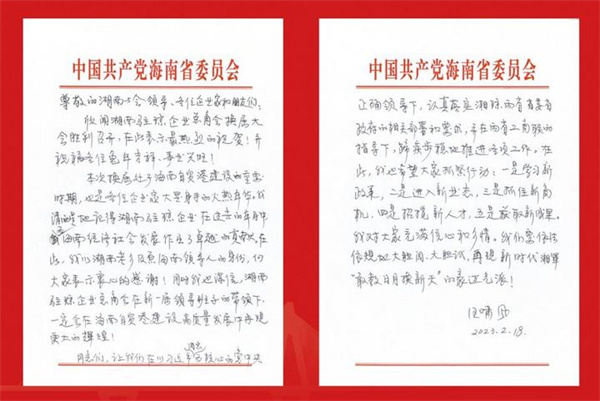 中国共产党海南省委员会
尊敬的湖南大会领导、各位企业家和朋友们：
欣闻湖南驻琼企业总商会换届大
会胜利召开，在此表示最热烈的祝贺！并
祝福各位兔年吉祥、事业兴旺！
本次换届处于海南自贸港建设的重要
时期，也是各位企业家大显身手的火热年代。我
清晰地记得湖南驻琼企业在这些年中
为海南经济社会发展作出了卓越的贡献。在
此，我以湖南老乡及海南领导人的身份，向
大家表示衷心的感谢！同时我也深信，湖南
驻琼企业总商会在新一届领导班子的带领下，
一定会在海南自贸港建设、高质量发展中再现
更大的辉煌！
同志们，让我们在以习近平同志为核心的党中央
中国共产党海南省委员会
正确领导下，认真落实湘琼两省省委省
政府的相关部署和要求，在两省工商联的
指导下，蹄疾步稳地推进各项工作。在
此，我也希望大家抓紧行动：一是学习新
政策，二是进入新业态，三是抓住新商
机，四是招揽新人才，五是获取新成果。
我对大家充满信心和乡情。我们要依法
依规地大胆闯、大胆试，再现新时代湘军
“敢教日月换新天”的豪迈气派！
2023.2.18.